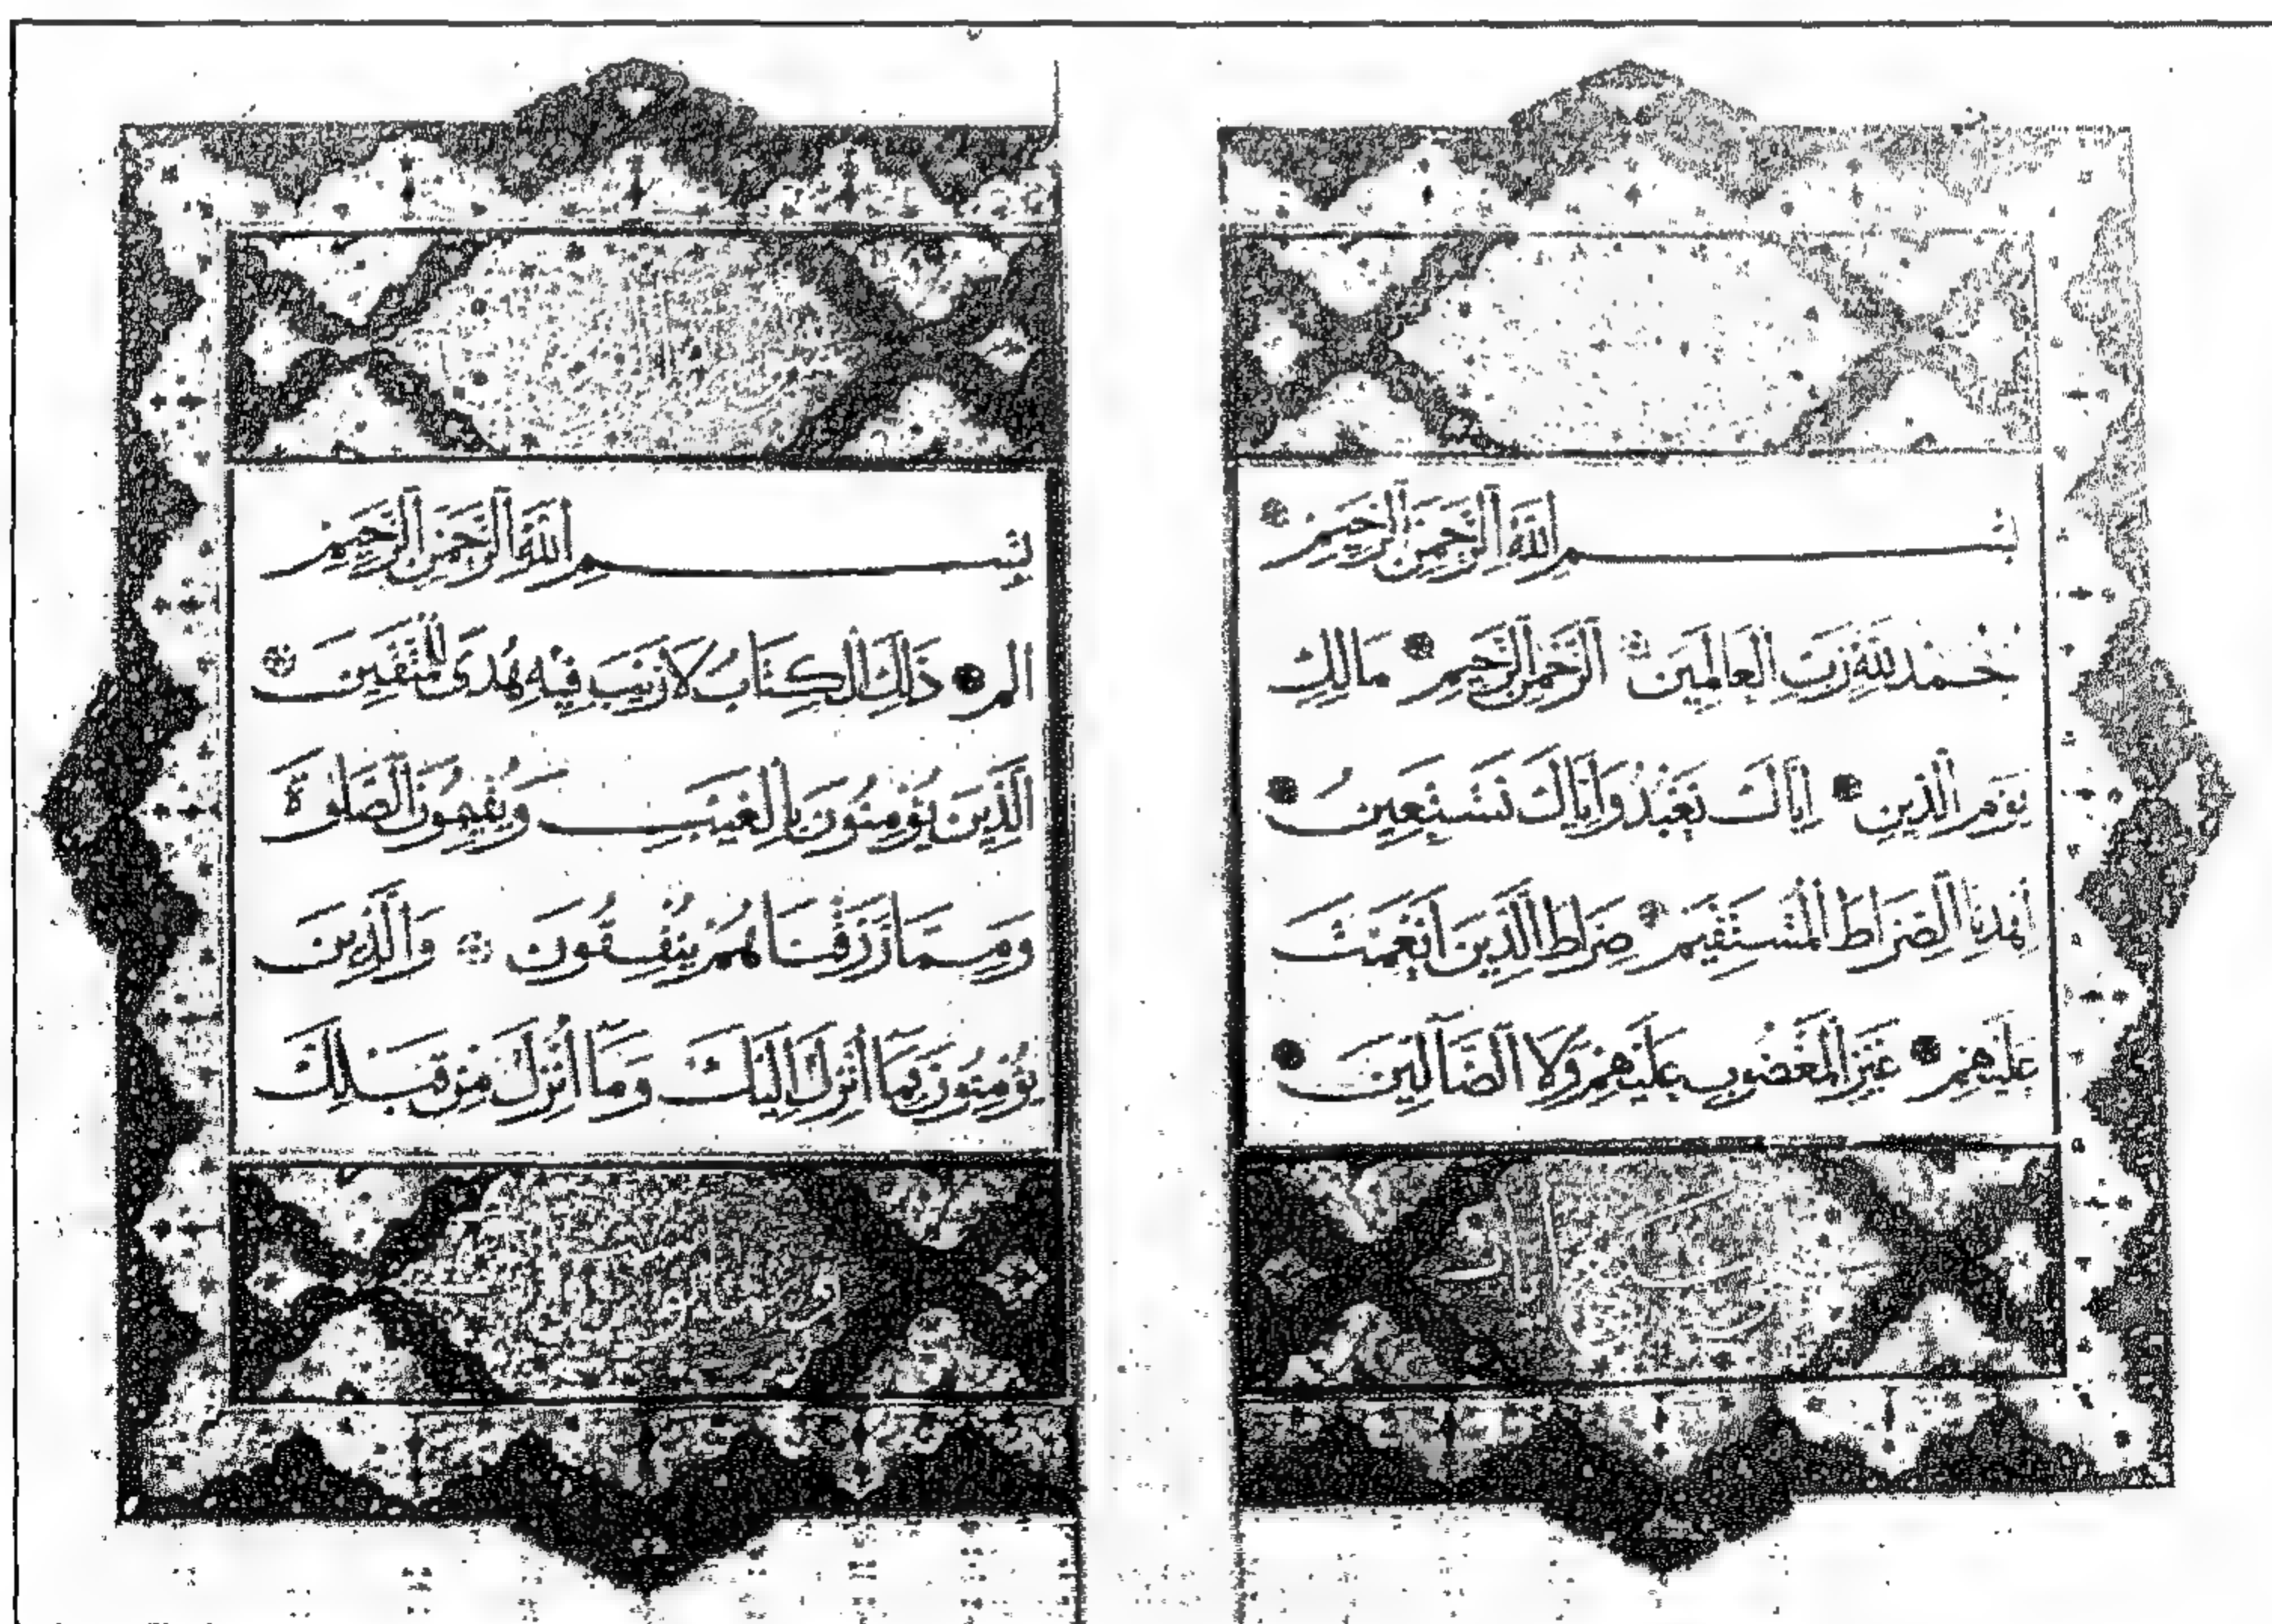 بِسْمِ اللّٰهِ الرَّحْمٰنِ الرَّحِيْمِ
لْحَمْدُ لِلّٰهِ رَبِّ الْعَالَمِينَ الرَّحْمٰنِ الرَّحِيمِ مَالِكِ
يَوْمِ الدِّينِ اِيَّاكَ نَعْبُدُ وَاِيَّاكَ نَسْتَعِينُ
اِهْدِنَا الصِّرَاطَ الْمُسْتَقِيمَ صِرَاطَ الَّذِينَ اَنْعَمْتَ
عَلَيْهِمْ غَيْرِ الْمَغْضُوبِ عَلَيْهِمْ وَلَا الضَّالِّينَ
بِسْمِ اللّٰهِ الرَّحْمٰنِ الرَّحِيمِ
الم ذَلِكَ الْكِتَابُ لَا رَيْبَ فِيهِ هُدًى لِلْمُتَّقِينَ
اَلَّذِينَ يُؤْمِنُونَ بِالْغَيْبِ وَيُقِيمُونَ الصَّلٰوةَ
وَمِمَّا رَزَقْنَاهُمْ يُنْفِقُونَ وَالَّذِينَ
يُؤْمِنُونَ بِمَا اُنْزِلَ اِلَيْكَ وَمَا اُنْزِلَ مِنْ قَبْلِكَ